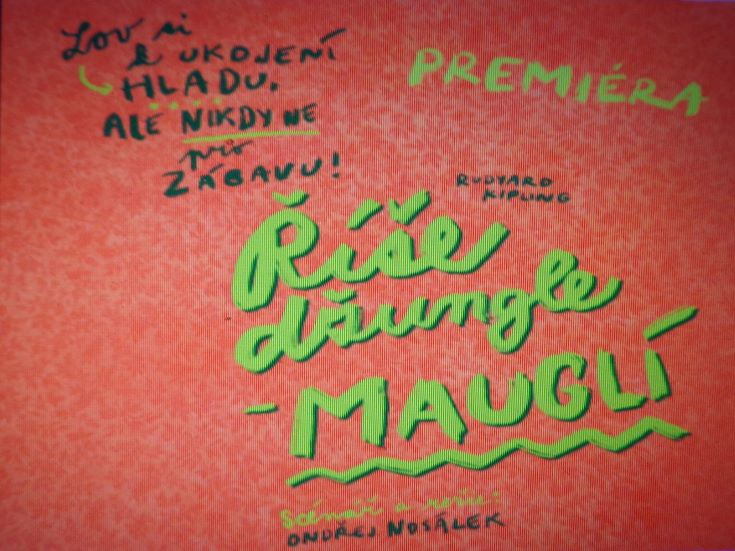 Lov si
k UKOJENÍ
HLADU,
ALE NIKDY NE
pro
ZÁBAVU!
PREMIÉRA
RUDYARD
KIPLING
Říše
džungle
- MAUGLÍ
Scénář a režie:
ONDŘEJ NOSÁLEK